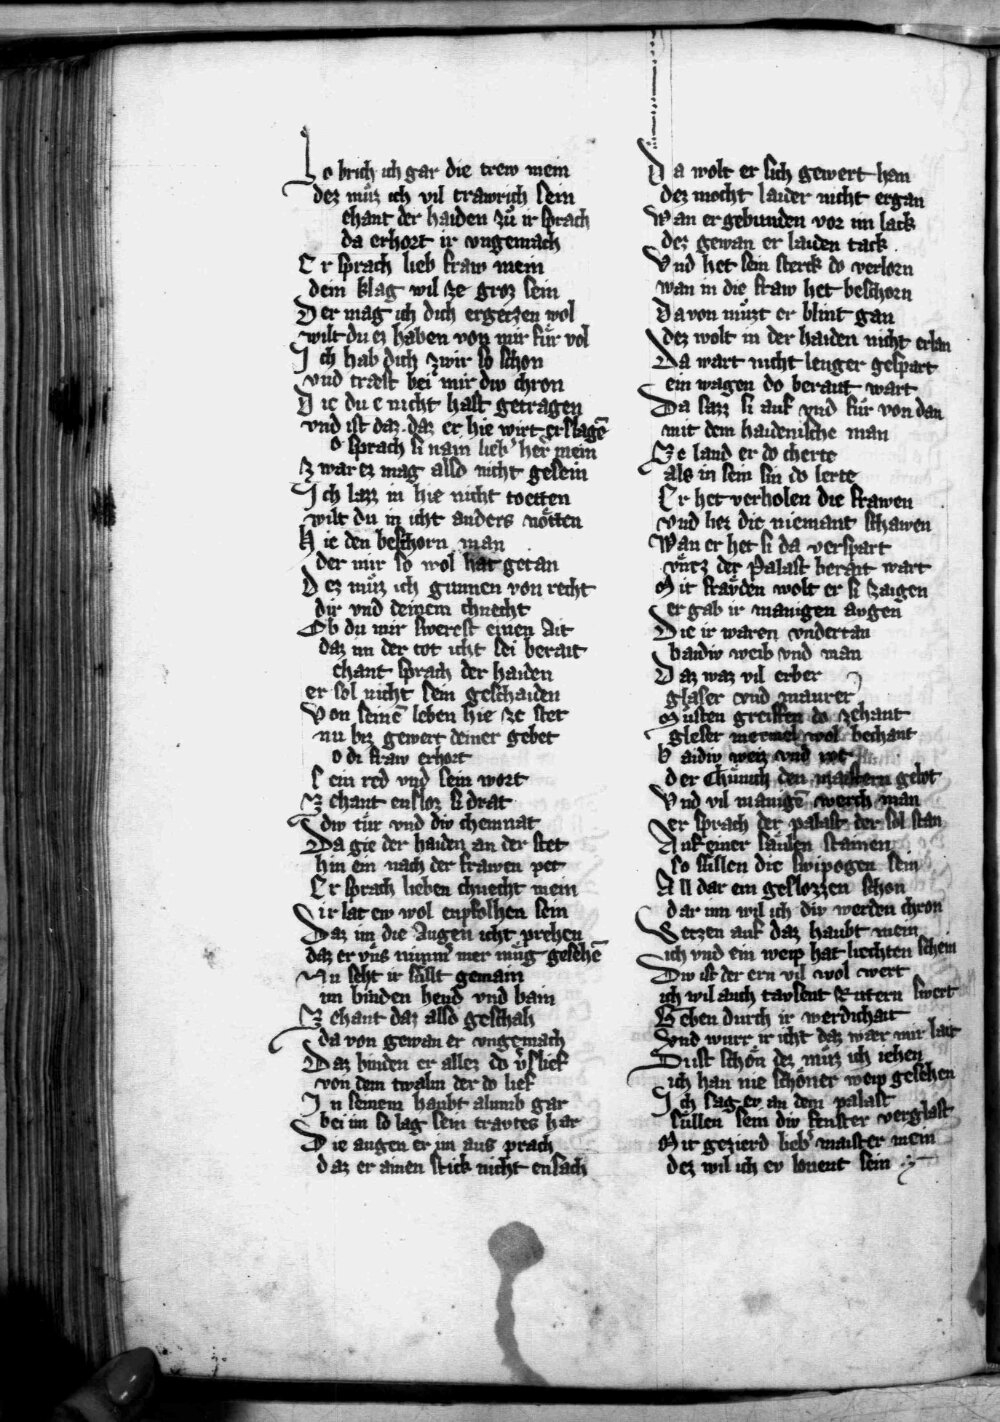 So brich ich gar die trew mein
dez muͤz ich vil trawrich sein
chant der haiden zuͦ ir sprach
da erhort ir vngemach
Er sprach lieb fraw mein
dein klag wil ze groz sein
Der mag ich dich ergetzen wol
wilt du ez haben von mir fuͤr vol
Ich hab dich zwir so schon
vnd træst bei mir div chron
Die du e nicht hast getragen
vnd ist daz daz er hie wirt erslagē
o sprach si nain lieb' her mein
Zwar ez mag also nicht gesein
Ich lazz in hie nicht toetten
wilt du in icht anders noͤtten
Hie den beschorn man
der mir so wol hat getan
Dez muͤz ich gunnen von recht
dir vnd deinem chnecht
Ob du mir swerest einen Ait
daz im der tot icht sei berait
chant sprach der haiden
er sol nicht sein geschaiden
Von seinē leben hie ze stet
nu biz gewert deiner gebet
o di fraw erhort
sein red vnd sein wort
Zehant ensloz si drat
div tuͤr vnd div chemnat
Da gie der haiden an der stet
hin ein nach der frawen pet
Er sprach lieben chnecht mein
ir lat ew wol enpfolhen sein
Daz im die Augen icht prehen
daz er vns nimm' mer muͤg gesehē
Nu seht ir sulst gemain
im binden hend vnd bain
Zehant daz also geschah
da von gewan er vngemach
Daz binden er allez do v'slief
von dem twalm der do lief
In seinem haubt alumb gar
bei im so lag sein traytes har
Die augen er im aus prach
daz er ainen stick nicht ensach
Da wolt er sich gewert han
dez mocht laider nicht ergan
Wan er gebunden vor im lack
dez gewan er laiden tack
Vnd het sein sterck do verlorn
wan in die fraw het beschorn
Da von muͤzt er blint gan
dez wolt in der haiden nicht erlan
Da wart nicht lenger gespart
ein wagen do berait wart
Da sazz si auf vnd fuͤr von dan
mit dem haidenische man
Ze land er do cherte
als in sein sin do lerte
Er het verholen die frawen
vnd liez die niemant schawen
Wan er het si da verspart
vntz der Palast berait wart
Mit fraͤvden wolt er si zaigen
er gab ir manigen aygen
Die ir waren vndertan
baidiv weib vnd man
Daz waz vil erber
glaser vnd maurer
Musten greiffen do zehant
gleser mermel wol bechant
Baidiv weiz vnd rot
der Chuͤnich den maistern gebot
Vnd vil manigē werch man
er sprach der palast der sol stan
Auf einer saulen stainen
so sullen die swipogen sein
All dar ein geslozzen schon
dar inn wil ich div werden chron
Setzen auf daz haubt mein
ich vnd ein weip hat liechten schein
Div ist der ern vil wol wert
ich wil auch tavsent Rutern swert
Geben durch ir werdichait
vnd wurr ir icht daz wær mir lait
Si ist schoͤn dez muz ich iehen
ich han nie schoͤner weip gesehen
Ich sag ev an dem palast
sullen sein div fenster verglast
Mit gezierd lieb' maister mein
dez wil ich ev lonent sein